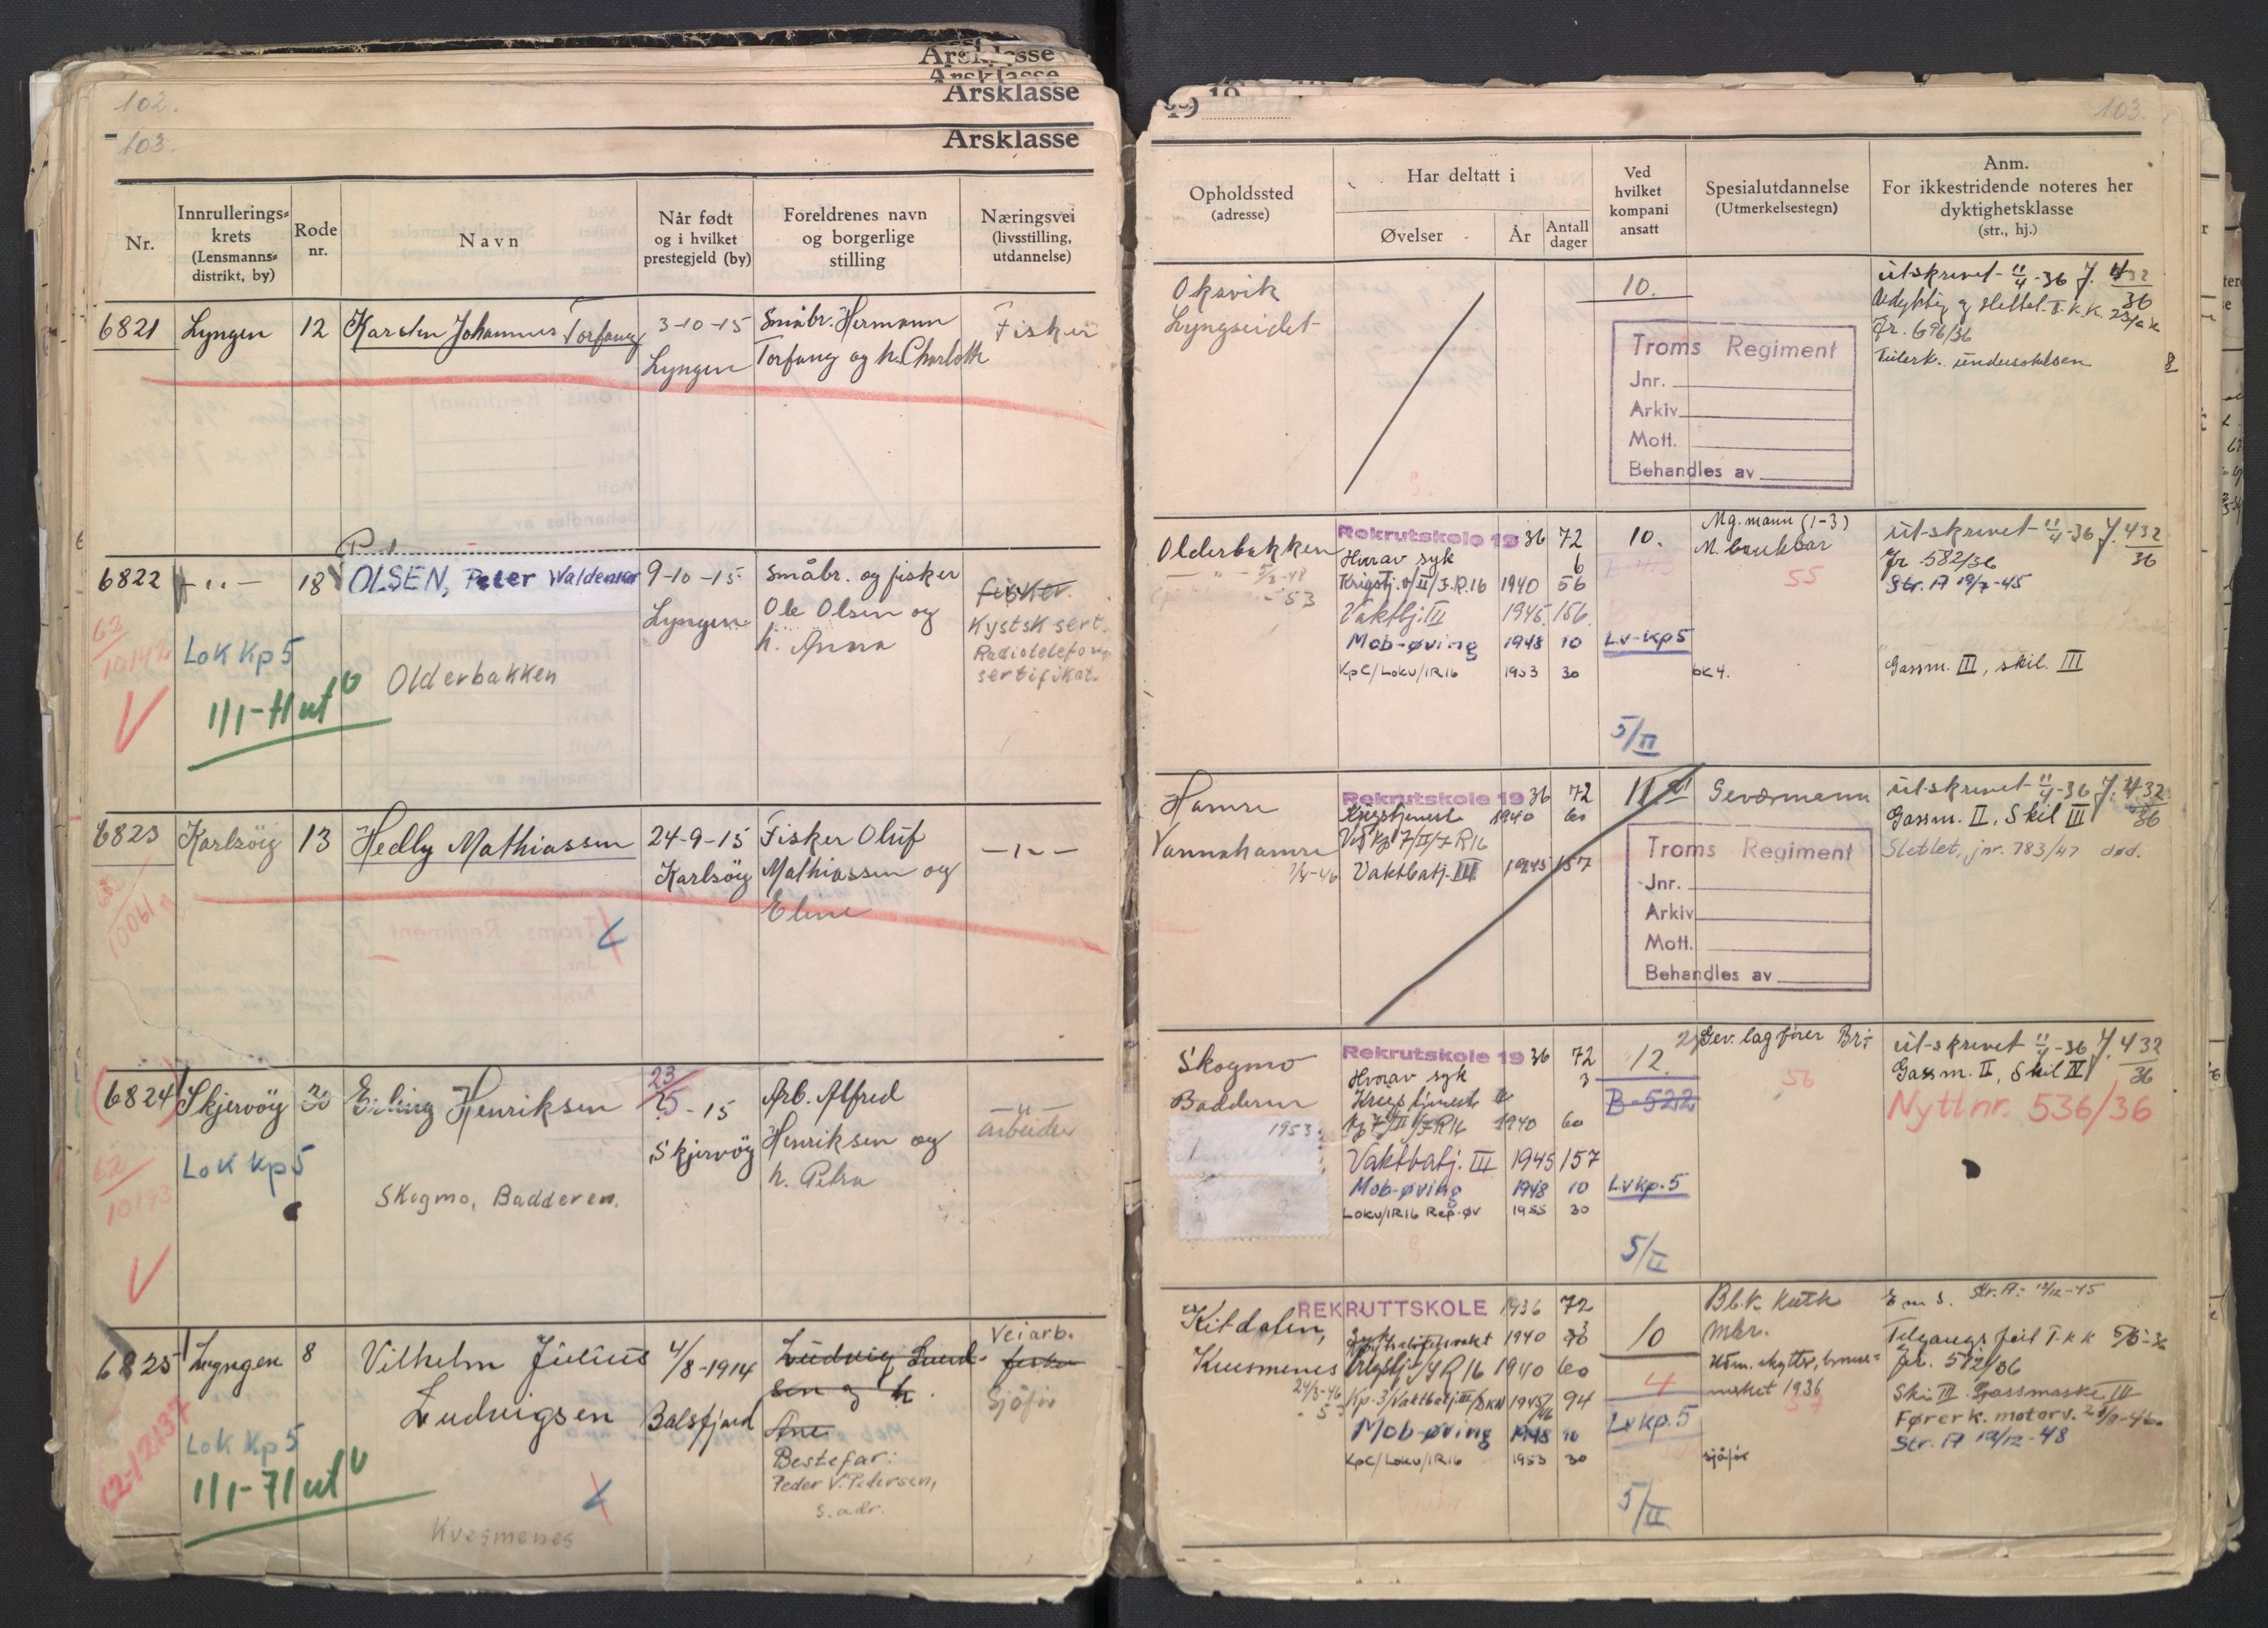 Årsklasse
Årsklasse
102.
Årsklasse
103.
Årsklasse
Nr.
Innrullerings-
krets
(Lensmanns-
distrikt, by)
Rode
nr.
Navn
Når født
og i hvilket
prestegjeld (by)
Foreldrenes navn
og borgerlige
stilling
Næringsvei
(livsstilling,
utdannelse)
6821 Lyngen 12 Karsten Johannes Torfang
3-10-15
Lyngen
Småbr. Hermann
Torfang og h. Charloth
Fisker
6822 — " — 18 OLSEN, Peter Waldemar
63
10142
Lok Kp 5
1/1-71 ut
Olderbakken
9-10-15
Lyngen
Småbr. og fisker
Ole Olsen og
h. Anna
fisker
Kystsk sert.
Radiotelefon
sertifikat.
6823 Karlsöy 13 Hedly Mathiassen
10061
24-9-15
Karlsöy
Fisker Oluf
Mathiassen og
Eline
— " —
6824 Skjervöy 20 Erling Henriksen
62
10193
Lok Kp 5
Skogmo, Badderen.
23
25-15
Skjervöy
Arb. Alfred
Henriksen og
h. Petra
— " —
arbeider
6825 Lyngen 8 Vilhelm Julius
Ludvigsen
62-12137
Lok Kp 5
1/1-71 ut
Kvesmenes
4/8-1914
Balsfjord
Ludvig Lund-
sen og h.
Ane
Bestefar:
Peder V. Pedersen,
s. adr.
Veiarb.
fisker
Sjåfør
19
103.
Opholdssted
(adresse)
Har deltatt i
Øvelser
År
Antall
dager
Ved
hvilket
kompani
ansatt
Spesialutdannelse
(Utmerkelsestegn)
Anm.
For ikkestridende noteres her
dyktighetsklasse
(str., hj.)
Oksvik
Lyngseidet
10.
Troms Regiment
Jnr.
Arkiv
Mott.
Behandles av
utskrevet 11/4-36 J. 432/36
Udyktig og slettet I.K.K.
Jr. 696/36
undersøkelsen
8
Olderbakken
5/3-48
- 53
Rekrutskole 1936 72
Hvorav syk 6
Krigstj. II/J.R.16 1940 56
Vaktbtj. III 1945 156
Mob-øving 1948 10
KpC/Lokv/IR16 1953 30
10.
Lv-Kp5
5/II
Mg. mann (1-3)
M. brukbar
55
bk 4.
utskrevet 11/4-36 J. 432/36
Jr 582/36
Str. A 19/7-45
Gassm. III, skil. III
Hamre
Vannahamre
Rekrutskole 1936 72
Krigstjeneste 1940 60
Ved Kp 7/II/J R16
Vaktbatj. III 1945 157
11
Geværmann
Troms Regiment
Jnr.
Arkiv
Mott.
Behandles av
utskrevet 11/4-36 J. 432/36
Gassm. II, Skil III
Slettet, jnr. 783/47 død.
Skogmo
Badderen
1953
Rekrutskole 1936 72
Hvorav syk 3
Krigstjeneste
Kp 7/II/J R16 1940 60
Vaktbatj. III 1945 157
Mob-øving 1948 10
Lokv/IR16 Rep-øv 1955 30
12.
B-522
Lvkp.5
5/II
Gev. lagfører
56
utskrevet 11/4-36 J. 432/36
Gassm. II, Skil IV
Nytt nr. 536/36
Kitdalen,
Kvesmenes
24/3-46
- 53
REKRUTTSKOLE 1936 72
Nøytralitetsvakt 1940 90
Krigstj. J R 16 1940 60
Kp. 3/Vaktbatj. III/DKN 1945/46 94
Mob-øving 1948 10
KpC/Lokv/IR16 1953 30
10
4
Lvkp. 5
5/II
mkr.
1936
57
sjåfør
E m s. Str. A: 12/12-45
Tilgangs T K K 5/5-36
jr. 512/36
Ski III Gassmaske III
Fører k. motorv.
Str. A 12/12-48